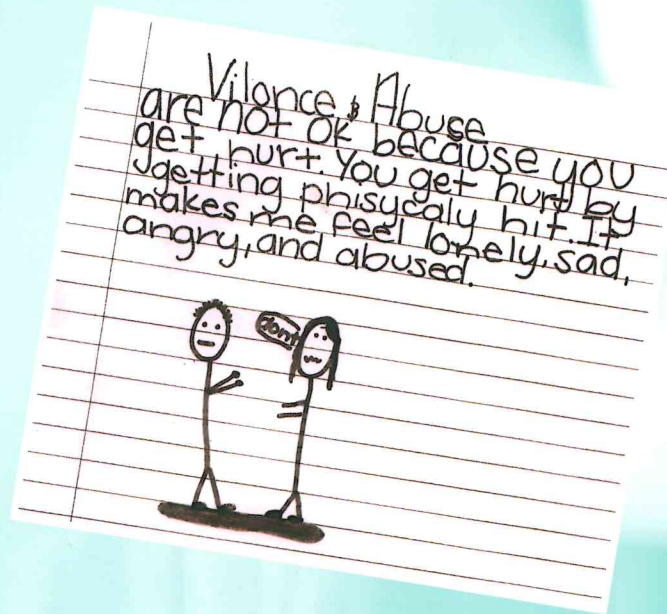 Vilonce & Abuse
are not ok because you
get hurt. You get hurt by
getting phisycaly hit. It
makes me feel lonely, sad,
angry, and abused.
dont